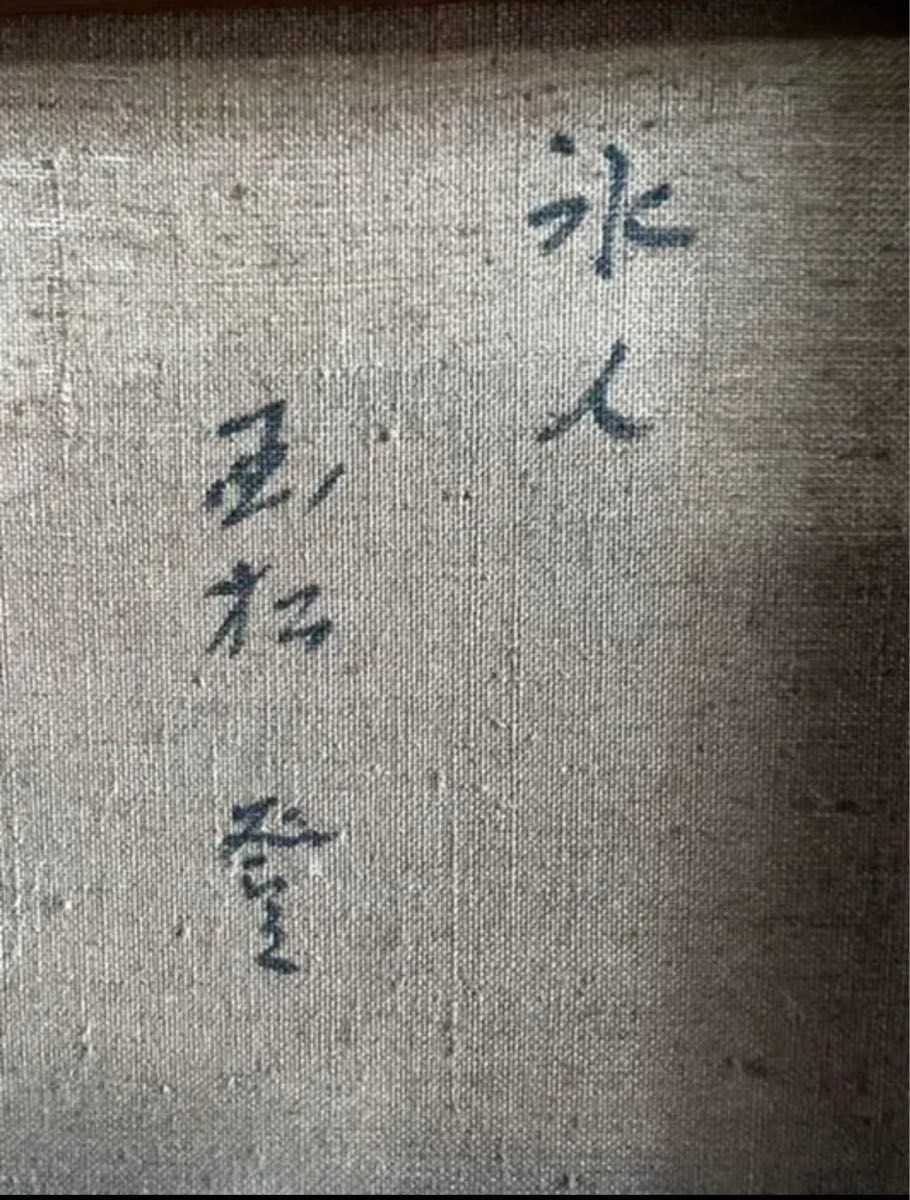 氷人
玉松 登